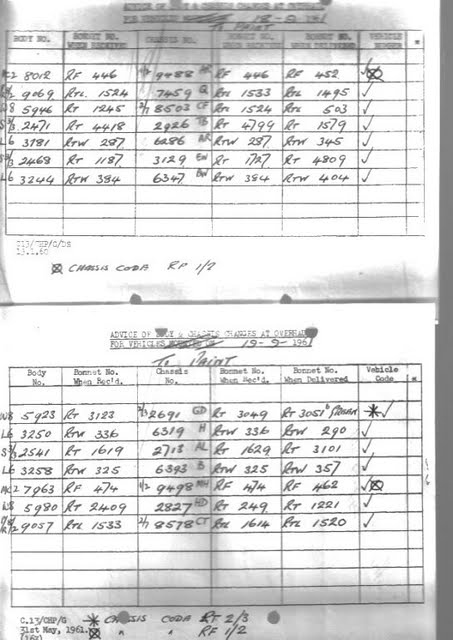 ADVICE OF BODY & CHASSIS CHANGES AT OVERHAUL
FOR VEHICLES 18-9-1961
To PAINT
BODY NO. BONNET NO. WHEN RECEIVED CHASSIS NO. BONNET NO. WHEN RECEIVED BONNET NO. WHEN DELIVERED VEHICLE NUMBER *
8012 RF 446 1/2 9488 RF 446 RF 452 ✓
9069 RTL 1524 7459 Q RTL 1533 RTL 1495 ✓
5946 RT 1245 2/1 8503 CF RTL 1524 RTL 503 ✓
2471 RT 4418 2926 TB RT 4799 RT 1579 ✓
L6 3181 RTW 287 6286 AR RTW 287 RTW 345 ✓
2468 RT 1187 3129 EW RT 1727 RT 4809 ✓
L6 3244 RTW 384 6347 BW RTW 384 RTW 404 ✓
C13/CHP/G/DS
CHASSIS CODA RF 1/2
ADVICE OF BODY & CHASSIS CHANGES AT OVERHAUL
FOR VEHICLES 19-9-1961
To PAINT
Body No. Bonnet No. When Rec'd. Chassis No. Bonnet No. When Rec'd. Bonnet No. When Delivered Vehicle Code *
W8 5923 RT 3123 2/3 2691 GD RT 3049 RT 3051 * ✓
L6 3250 RTW 336 6319 H RTW 336 RTW 290 ✓
2541 RT 1619 2713 AL RT 1629 RT 3101 ✓
L6 3258 RTW 325 6393 B RTW 325 RTW 357 ✓
7963 RF 474 1/2 9498 MH RF 474 RF 462 ✓
W8 5980 RT 2409 2827 HD RT 249 RT 1221 ✓
9057 RTL 1533 2/1 8578 CT RTL 1614 RTL 1520 ✓
C.13/CHP/G * CHASSIS CODA RF 2/3
31st May, 1961. " " RF 1/2